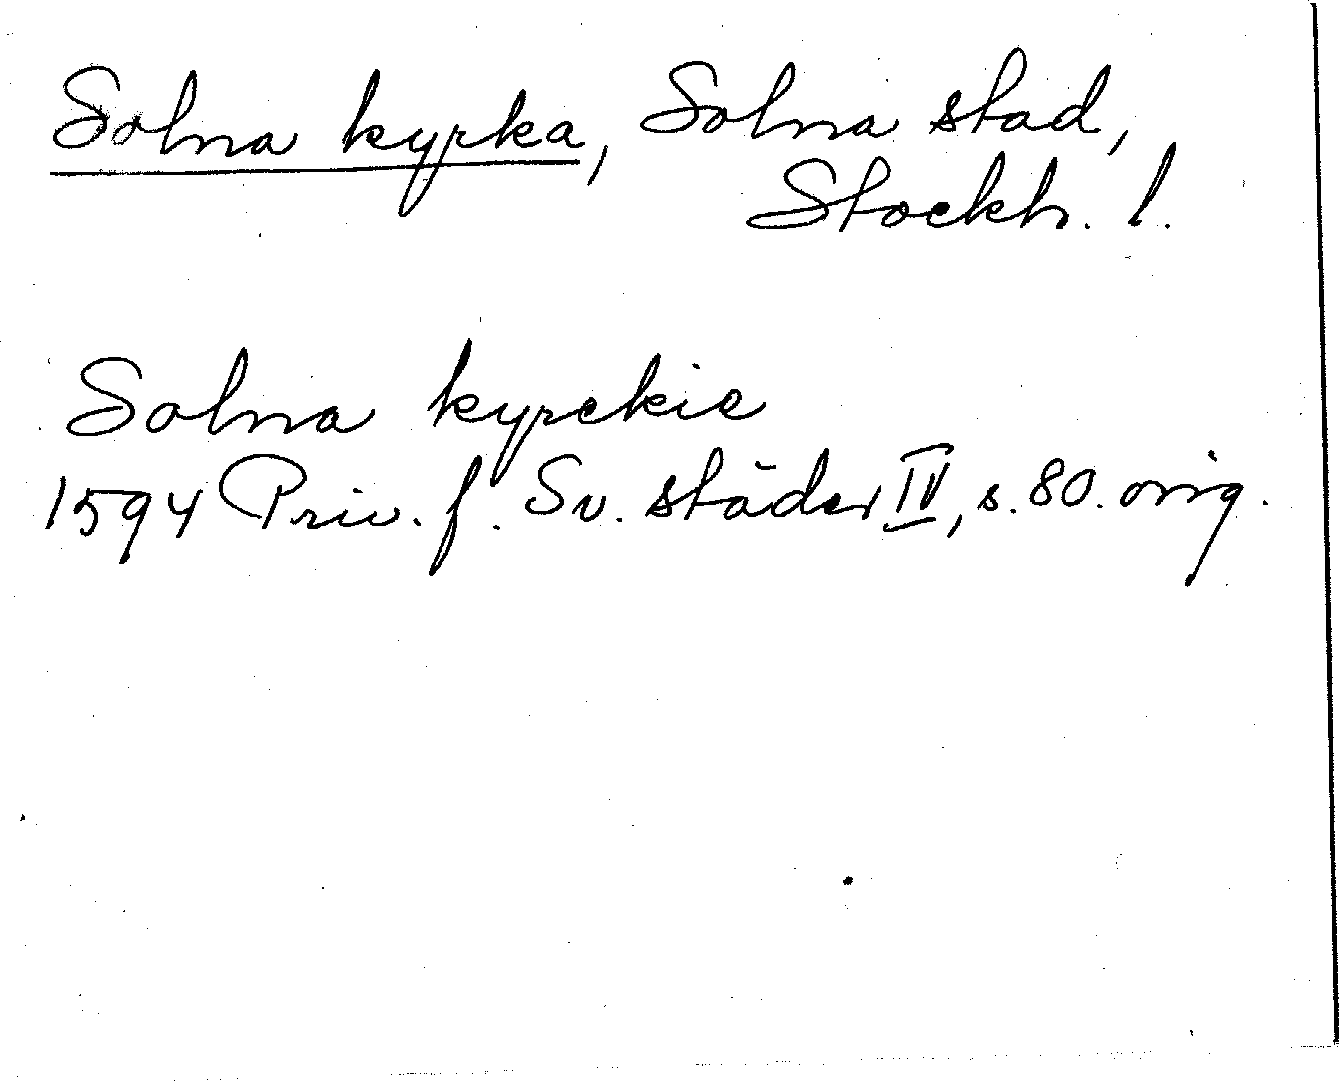 Solna kyrka, Solna stad,
Stockh. l.
Solna kyrckie
1594 Priv. f. Sv. städer IV, s. 80. orig.